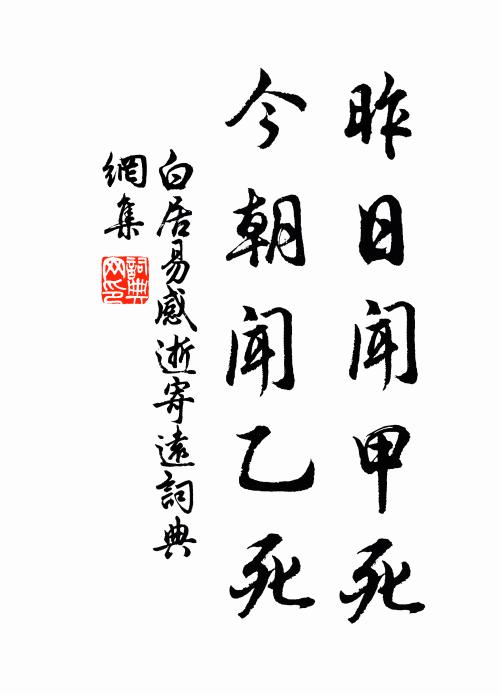 昨日聞甲死
今朝聞乙死
白居易感逝寄遠詞典
網集
詞典網印